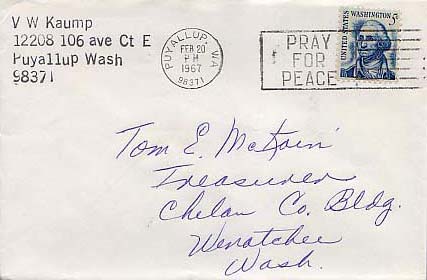 V W Kaump
12208 106 ave Ct E
Puyallup Wash
98371
PUYALLUP, WA
FEB 20
PM
1967
98371
PRAY
FOR
PEACE
UNITED STATES
WASHINGTON 5¢
Tom E. McKoin
Treasurer
Chelan Co. Bldg.
Wenatchee
Wash.